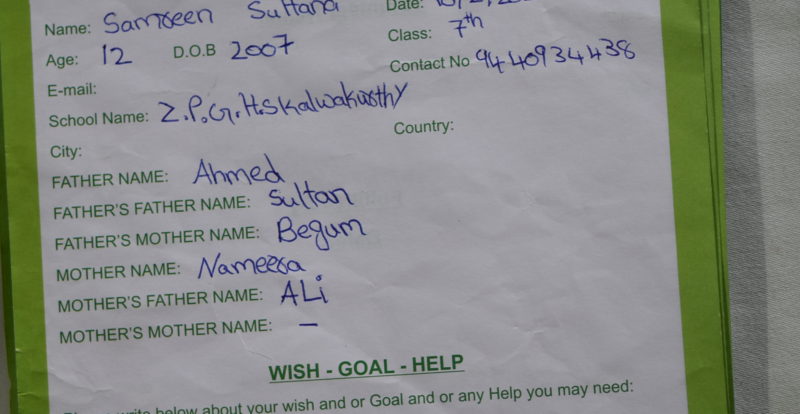 Name: Samreen Sultana Date:
Age: 12 D.O.B 2007 Class: 7th
E-mail: Contact No 9440934438
School Name: Z.P.G.H.S Kalwakurthy
City: Country:
FATHER NAME: Ahmed
FATHER'S FATHER NAME: Sultan
FATHER'S MOTHER NAME: Begum
MOTHER NAME: Nameera
MOTHER'S FATHER NAME: ALi
MOTHER'S MOTHER NAME: –
WISH - GOAL - HELP
write below about your wish and or Goal and or any Help you may need: